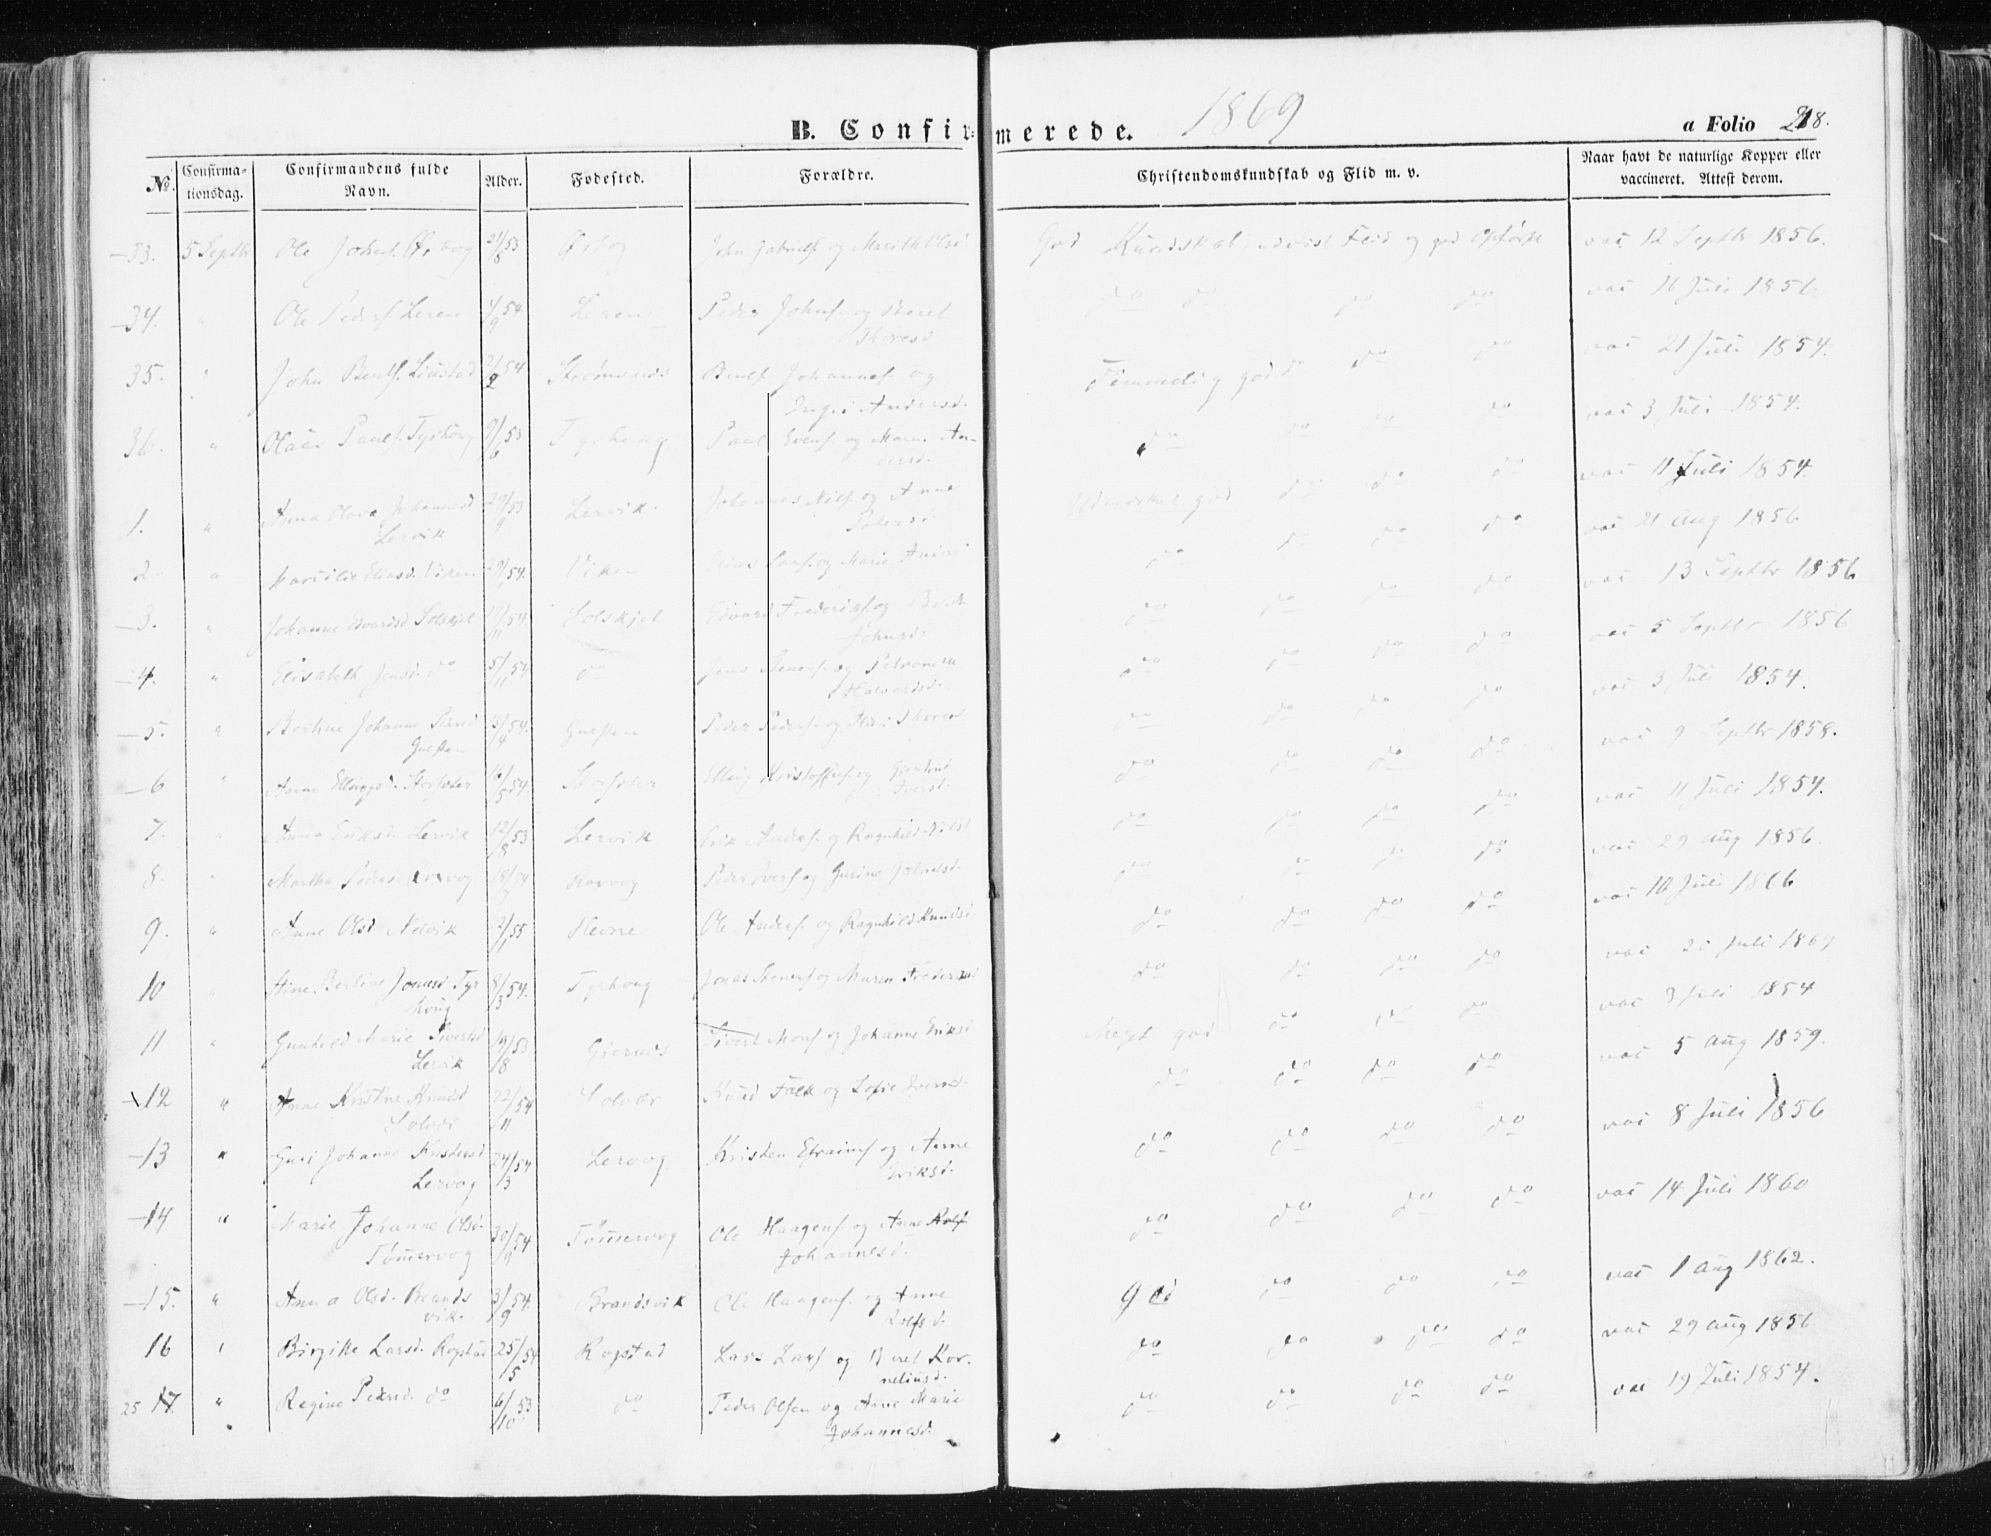 B. Confirmerede. 1869 a Folio 218.
No. Confirmationsdag. Confirmandens fulde Navn. Alder. Fødested. Forældre. Christendomskundskab og Flid m. v. Naar havt de naturlige Kopper eller vaccineret. Attest derom.
33. 5 Septbr Ole Johns. 21/8 53 John Gabriels. og Marith Olsd. God Kundskab, udvist Flid og god Opførsel vac 12 Septbr 1856.
34. " Ole Peders. Leren 1/9 54 Leren Peder Johns. og Beret Thoresd. do do do do vac 16 Juli 1856
35. " John Bentss. Liustad 2/2 54 Strømsnes Bents. Johannes. og Ingri Andersd. Temmelig god do do do vac 21 Juli 1854.
36. " Olaus Pauls. Tyrhoug 9/6 53 Tyrhoug Paul Evens. og Maren Andersd. do do do do vac 3 Juli 1854.
1. " Anna Olava Johannesd Lervik 29/9 53 Lervik. Johannes Nils. og Anne Pedersd. Udmærket god do do do vac 11 Juli 1854.
2 " Eliasd. Viken 54. Viken Elias Lars. og Marie do do do do vac 21 Aug 1856
3. " Johanne Edvardsd Solskjel 17/11 54. Solskjel Edvard Frederiks. og Berit Johnsd. do do do do vac 13 Septbr 1856
4. " Elisabeth Jensd. do 5/11 54 do Jens og Petronella Halvardsd. do do do do vac 5 Septbr 1856
5. " Johanne Pedersd 13/4 54. Peder Peders. og Thoresd do do do do vac 3 Juli 1854.
6 " Anne Ellingsd. Storsæter 16/5 54. Storsæter Elling Kristoffers. og Gjertrud Iversd. do do do do vac 9 Septbr 1858.
7. " Anna Eriksd. Lervik 12/8 53 Lervik Erik Anders. og Ragnhild Nilsd do do do do vac 11 Juli 1854.
8. " Martha Pedersd Korvog Korvog Peder Ivers. og Gurine Gabrielsd. do do do vac 29 Aug 1856.
9. " Anne Olsd 22/1 55 Hevne Ole Anders. og Ragnhild Knudsd. do do do do vac 10 Juli 1866
10 " Stine Bertine Jonasd. Tyrhoug 8/3 54. Tyrhoug Jonas Steners. og Maren Frederiksd do do do do vac 20 Juli 1869
11 " Gunhild Marie Sivertsd Lervik 19/8 53 Sivert Mons. og Johanne Eriksd Meget god do do do vac 3 Juli 1854
12 " Anne Kristine Knudsd Solvær 22/11 54 Solvær Knud Falk og Sofie Iversd. do do do do vac 5 Aug 1859.
13 " Guri Johanne Kristensd Lervog 24/3 54 Lervog Kristen Efraims. og Anne Eriksd. do do do do vac 8 Juli 1856
14 " Marie Johanne Olsd. Tømervog 30/9 54 Tømervog Ole Haagens. og Anne Johannesd. do do do do vac 14 Juli 1860
15. " Anna Olsd. Brandsvik. 3/9 54. Brandsvik Ole Haagens. og Anne Rolfsd. God do do do vac 1 Aug 1862.
16 " Birgitte Larsd. Ropstad 25/5 54 Ropstad Lars Lars. og Beret Kornelíusd. do do do do vac 29 Aug 1856
25 17. " Regine Pedersd. do 6/10 53 do Peder Olsen og Anne Marie Johannesd. do do do do vac 19 Juli 1854.